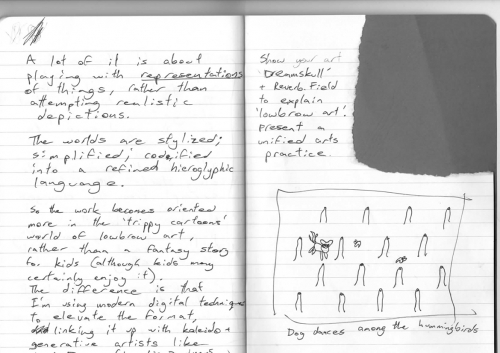 A lot of it is about
playing with representations
of things, rather than
attempting realistic
depictions.
The worlds are stylized;
simplified; codified
into a refined hieroglyphic
language.
So the work becomes oriented
more in the 'trippy cartoons'
world of lowbrow art,
rather than a fantasy story
for kids (although kids may
certainly enjoy it).
The difference is that
I'm using modern digital techniques
to elevate the format,
linking it up with kaleido +
generative artists like
Show your art
'Dreamskull'
+ Reverb. Field
to explain
'lowbrow art'.
Present a
unified arts
practice.
Dog dances among the hummingbirds